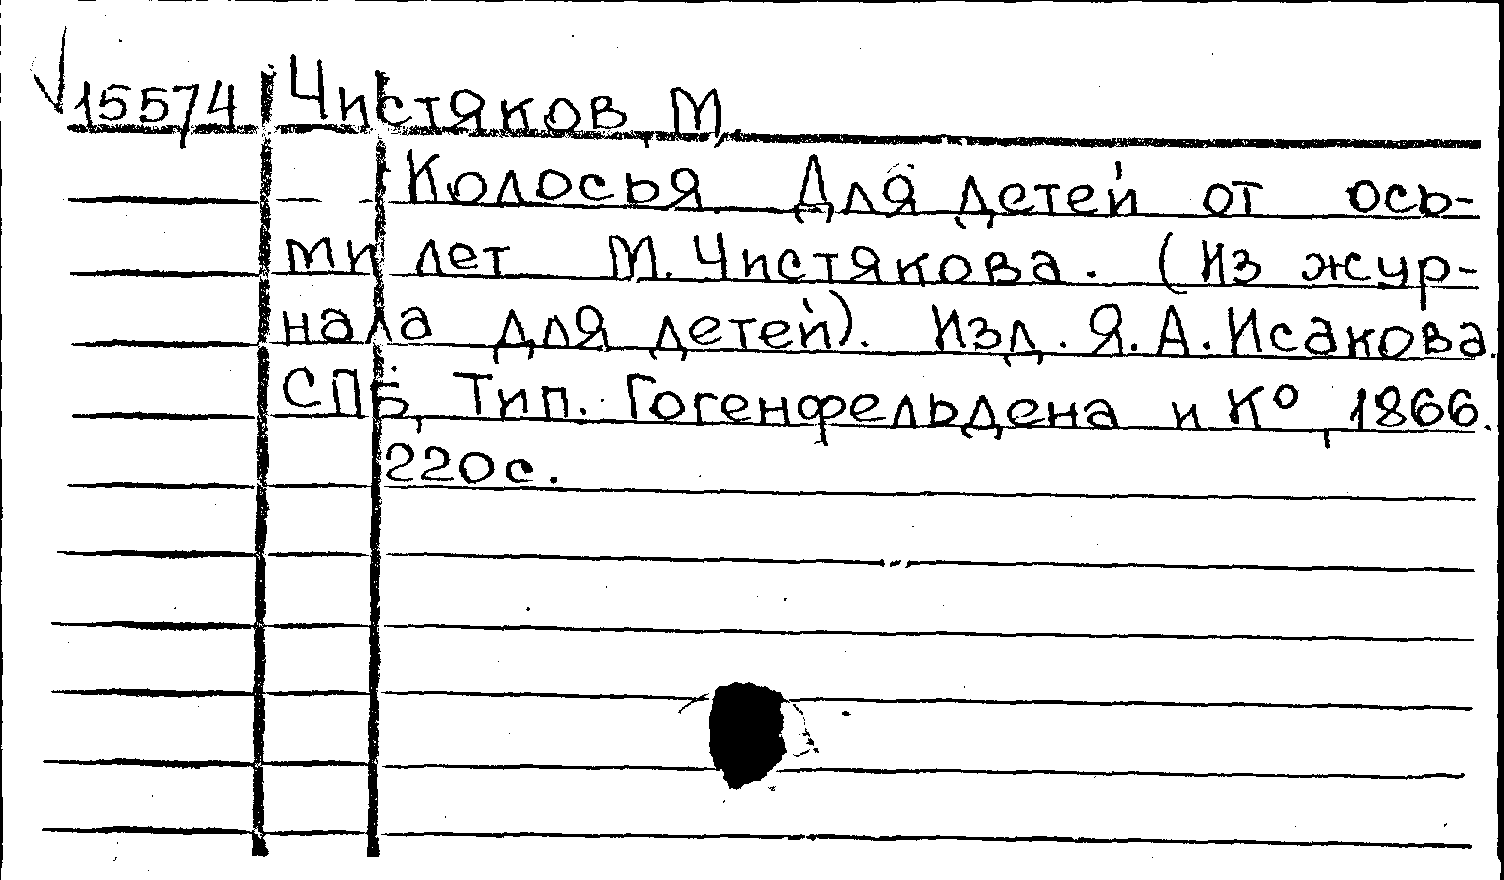 15574 Чистяков, М.
Колосья. Для детей от ось-
ми лет М. Чистякова. (Из жур-
нала для детей). Изд. Я.А. Исакова.
СПБ, Тип. Гогенфельдена и К°, 1866.
220 с.